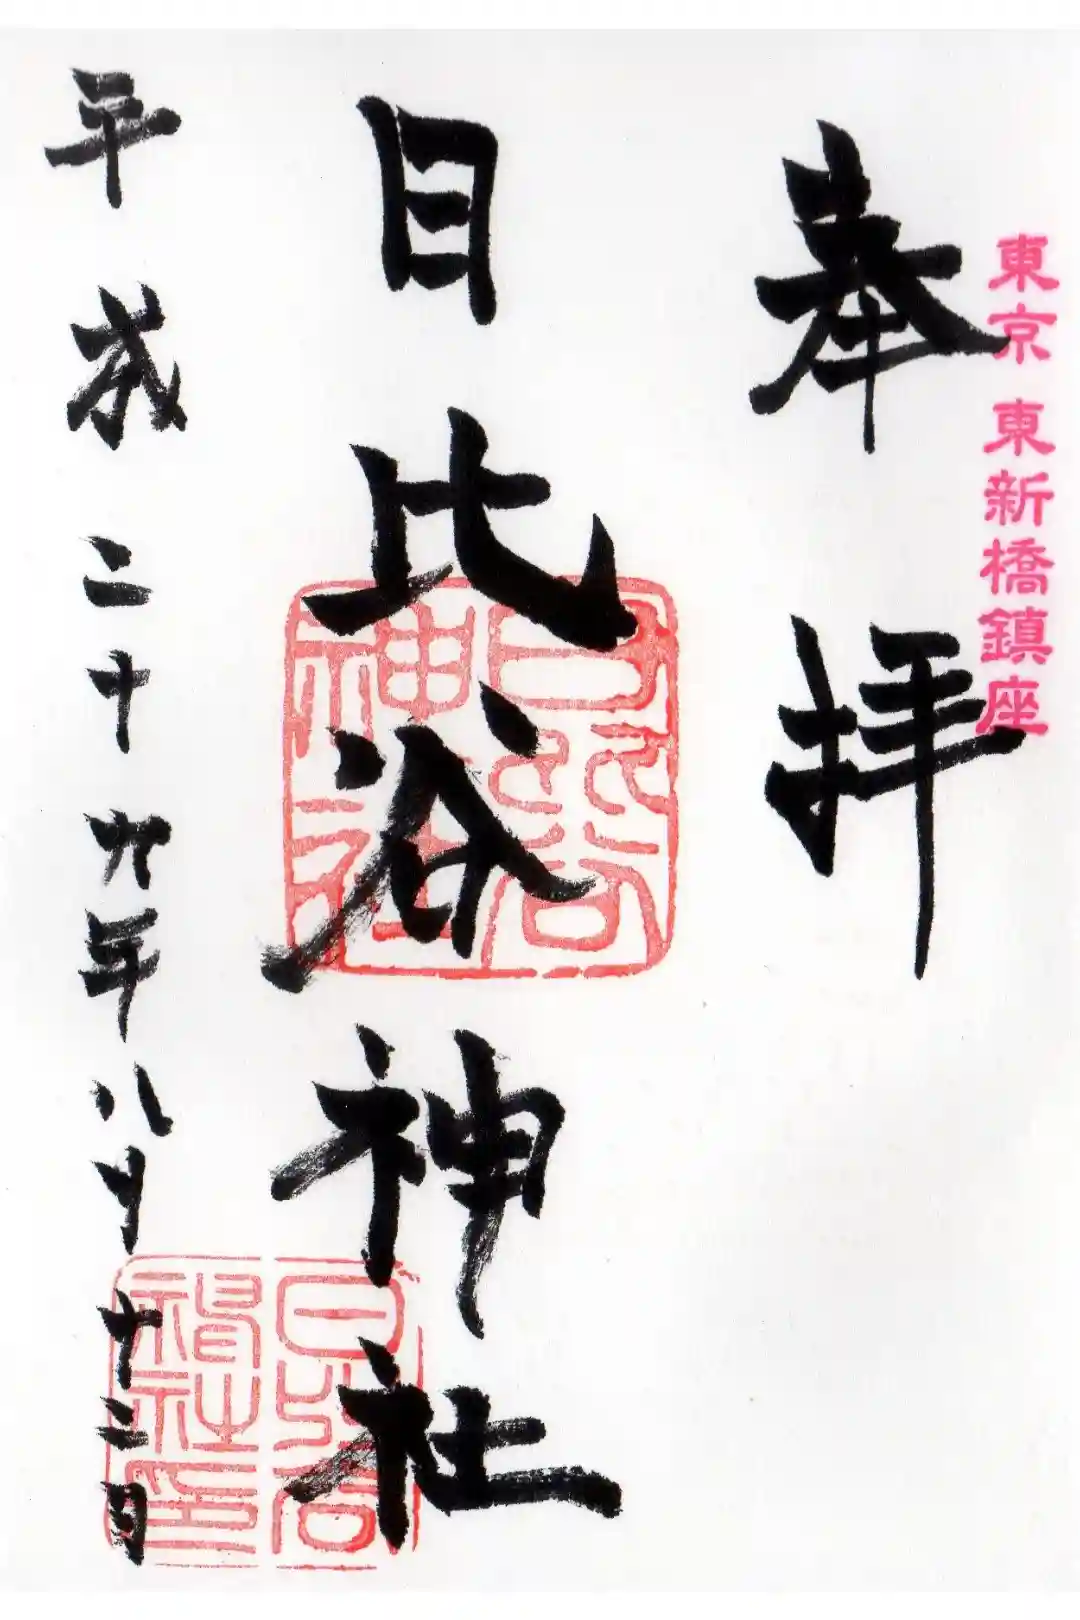 東京 東新橋鎮座
奉拝
日比谷神社
日比谷
神社
平成二十六年八月十三日